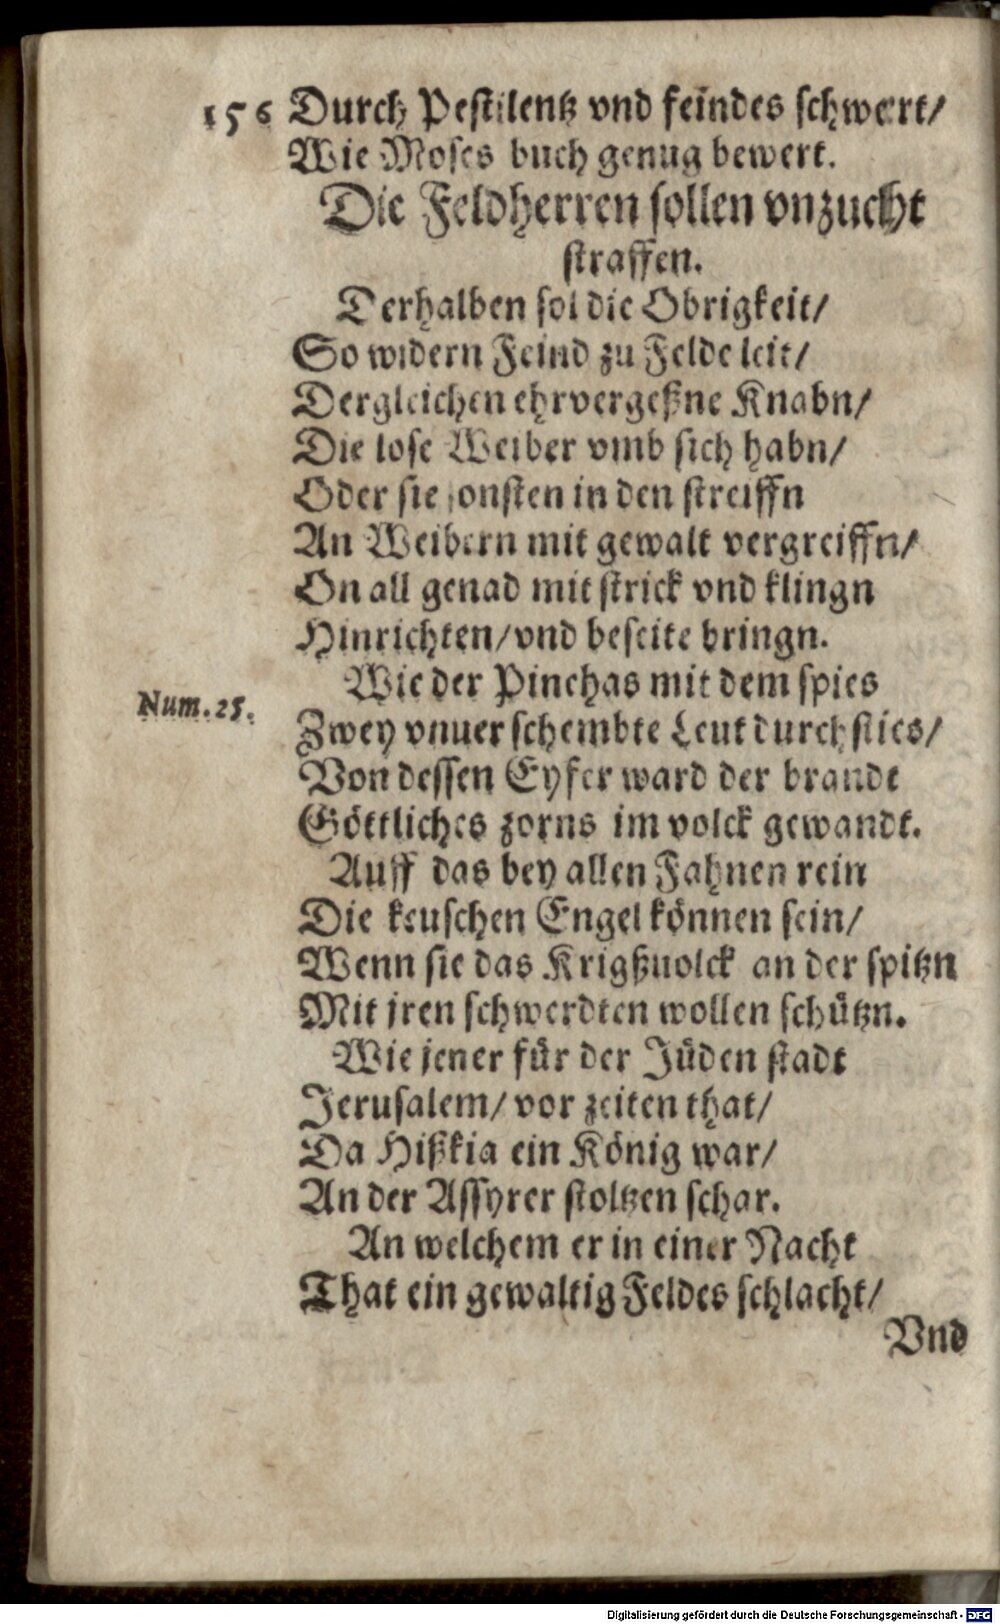 156 Durch Pestilentz vnd feindes schwert/
Wie Moses buch genug bewert.
Die Feldherren sollen vnzucht
straffen.
Derhalben sol die Obrigkeit/
So widern Feind zu Felde leit/
Dergleichen ehrvergeßne Knabn/
Die lose Weiber vmb sich habn/
Oder sie sonsten in den streiffn
An Weibern mit gewalt vergreiffn/
On all genad mit strick vnd klingn
Hinrichten/vnd beseite bringn.
Wie der Pinehas mit dem spies
Num. 25.
Zwey vnuerschembte Leut durchsties/
Von dessen Eyfer ward der brandt
Göttliches zorns im volck gewandt.
Auff das bey allen Fahnen rein
Die keuschen Engel können sein/
Wenn sie das Krigßuolck an der spitzn
Mit jren schwerdten wollen schützn.
Wie jener für der Jüden stadt
Jerusalem/ vor zeiten that/
Da Hißkia ein König war/
An der Assyrer stoltzen schar.
An welchem er in einer Nacht
That ein gewaltig Feldes schlacht/
Vnd
Digitalisierung gefördert durch die Deutsche Forschungsgemeinschaft - DFG